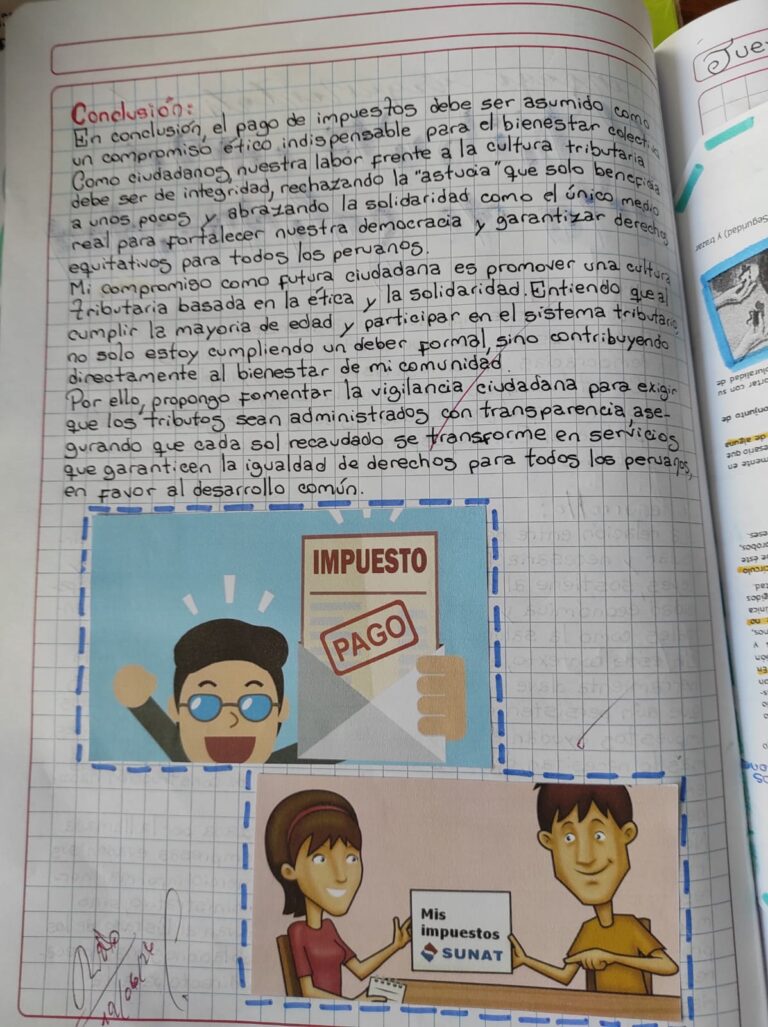 Conclusión:
En conclusión, el pago de impuestos debe ser asumido como
un compromiso ético indispensable para el bienestar colectivo
Como ciudadanos, nuestra labor frente a la cultura tributaria
debe ser de integridad, rechazando la "astucia" que solo beneficia
a unos pocos y abrazando la solidaridad como el único medio
real para fortalecer nuestra democracia y garantizar derechos
equitativos para todos los peruanos.
Mi compromiso como futura ciudadana es promover una cultura
tributaria basada en la ética y la solidaridad. Entiendo que al
cumplir la mayoria de edad y participar en el sistema tributario,
no solo estoy cumpliendo un deber formal, sino contribuyendo
directamente al bienestar de mi comunidad.
Por ello, propongo fomentar la vigilancia ciudadana para exigir
que los tributos sean administrados con transparencia, ase-
gurando que cada sol recaudado se transforme en servicios
que garanticen la igualdad de derechos para todos los peruanos,
en favor al desarrollo común.
IMPUESTO
PAGO
Mis
impuestos
SUNAT
Seguridad) y trazar
conjunto de
de alguna
mente en